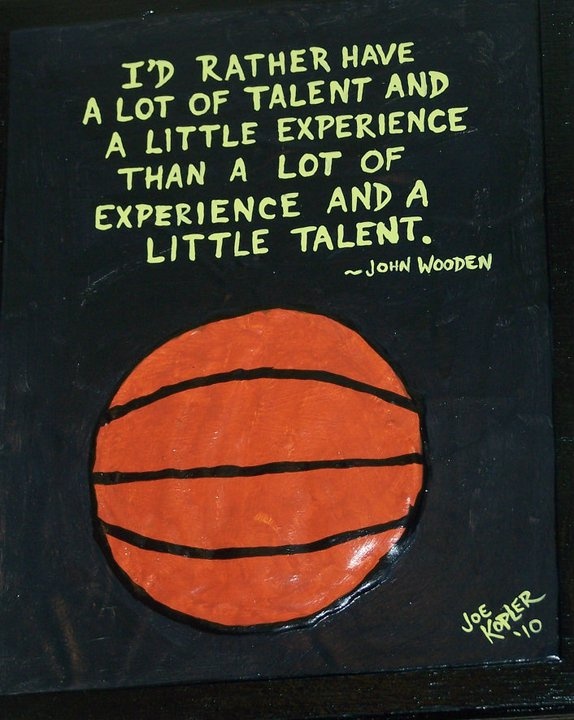 I'D RATHER HAVE
A LOT OF TALENT AND
A LITTLE EXPERIENCE
THAN A LOT OF
EXPERIENCE AND A
LITTLE TALENT.
~JOHN WOODEN
JOE
KOPLER
'10